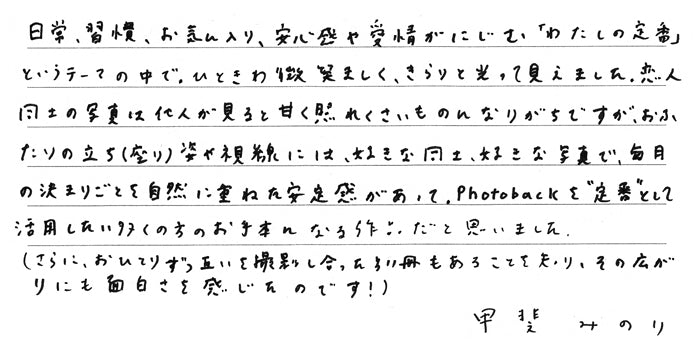 日常、習慣、お気に入り、安心感や愛情がにじむ「わたしの定番」
というテーマの中で、ひときわ微笑ましく、きらりと光って見えました。恋人
同士の写真は他人が見ると甘く照れくさいものになりがちですが、おふ
たりの立ち(座り)姿や視線には、好きな同士、好きな写真で、毎月
の決まりごとを自然に重ねた安定感があって。Photobackを"定番"として
活用したい多くの方のお手本になる作品だと思いました。
(さらに、おひとりずつ互いを撮影し合った別冊もあることを知り、その広が
りにも面白さを感じたのです!)
甲斐みのり